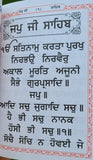 ਜਪੁ ਜੀ ਸਾਹਿਬ
ੴ ਸਤਿਨਾਮੁ ਕਰਤਾ ਪੁਰਖੁ
ਨਿਰਭਉ ਨਿਰਵੈਰੁ
ਅਕਾਲ ਮੂਰਤਿ ਅਜੂਨੀ
ਸੈਭੰ ਗੁਰਪ੍ਰਸਾਦਿ॥
॥ਜਪੁ॥
ਆਦਿ ਸਚੁ ਜੁਗਾਦਿ ਸਚੁ॥
ਹੈ ਭੀ ਸਚੁ ਨਾਨਕ
ਹੋਸੀ ਭੀ ਸਚੁ॥੧॥
ਸੋਚੈ ਸੋਚਿ ਨ ਹੋਵਈ ਜੇ